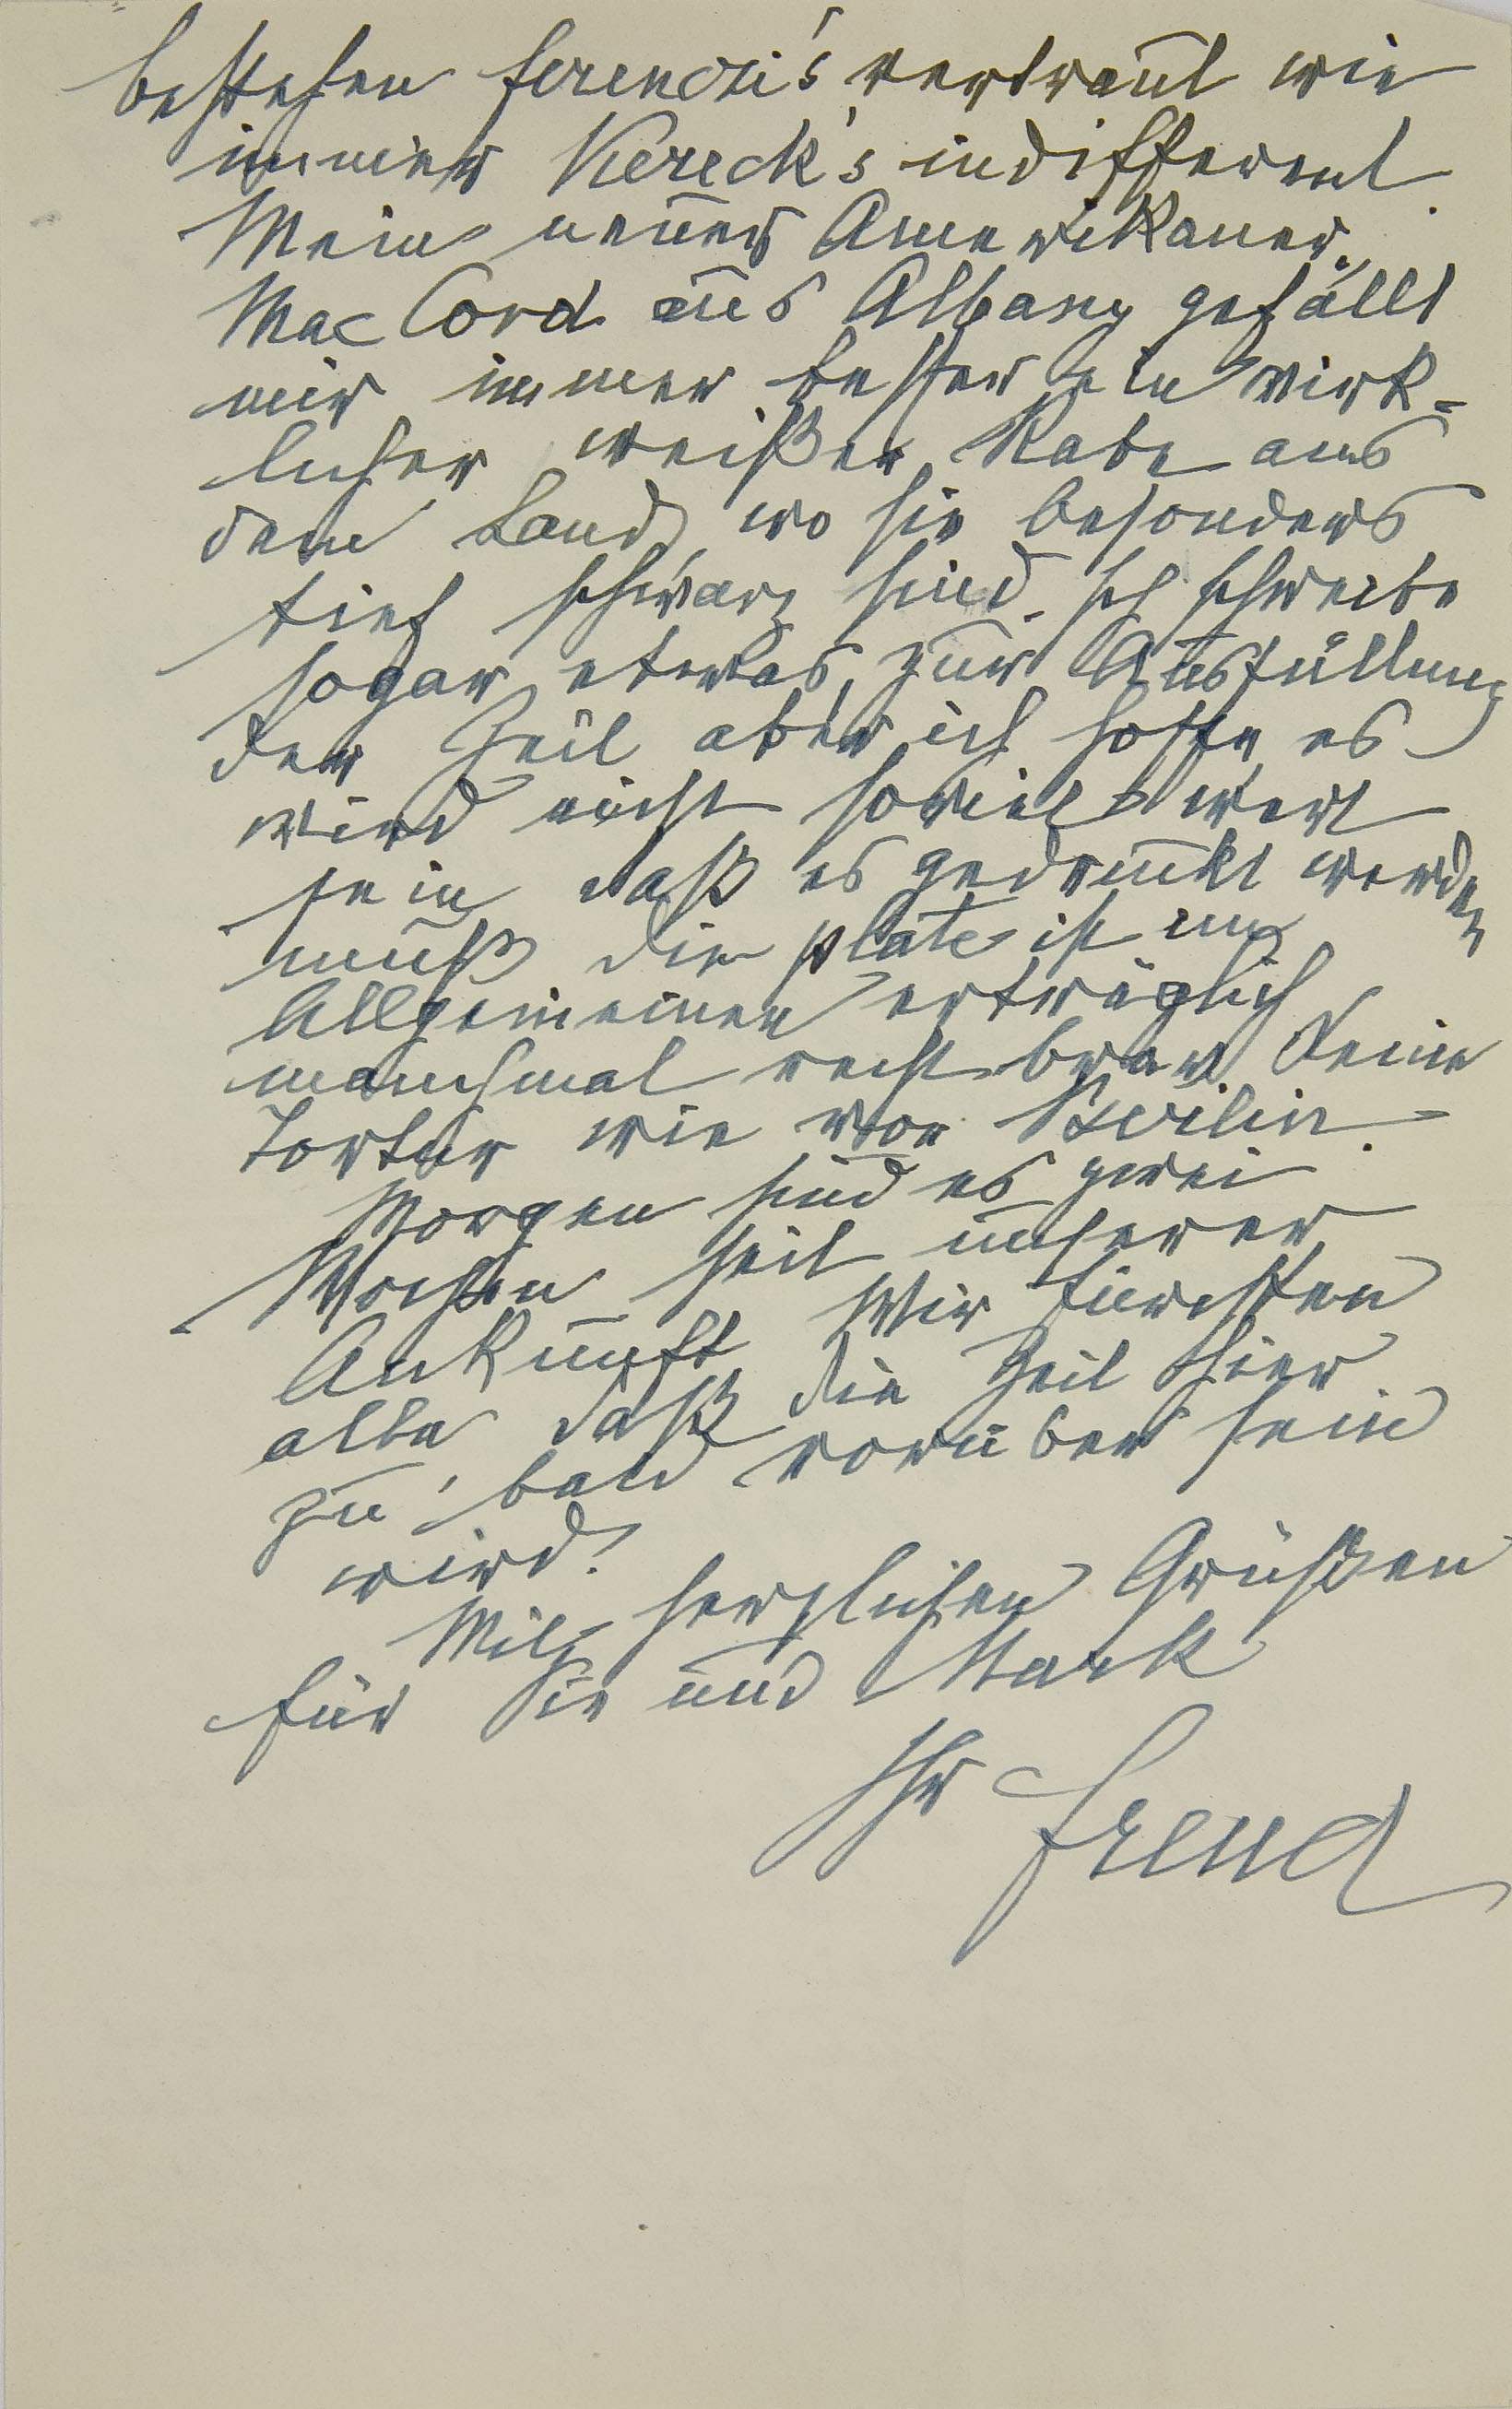 bestehen Ferenczi's vertraut wie
immer Viereck's indifferent.
Mein neuer Amerikaner,
Mac Cord aus Albany gefällt
mir immer besser, ein wirk-
licher weißer Rabe aus
dem Land, wo sie besonders
tief schwarz sind. Ich schreibe
sogar etwas zur Ausfüllung
der Zeit aber ich hoffe es
wird nicht soviel wert
sein daß es gedruckt werden
muß die plate ist im
Allgemeinen erträglich
manchmal recht brav. Keine
Tortur wie vor Berlin.
Morgen sind es zwei
Wochen seit unserer
Ankunft. Wir fürchten
alle daß die Zeit hier
zu bald vorüber sein
wird!
Mit herzlichen Grüßen
für Sie und Mark
Ihr Freud